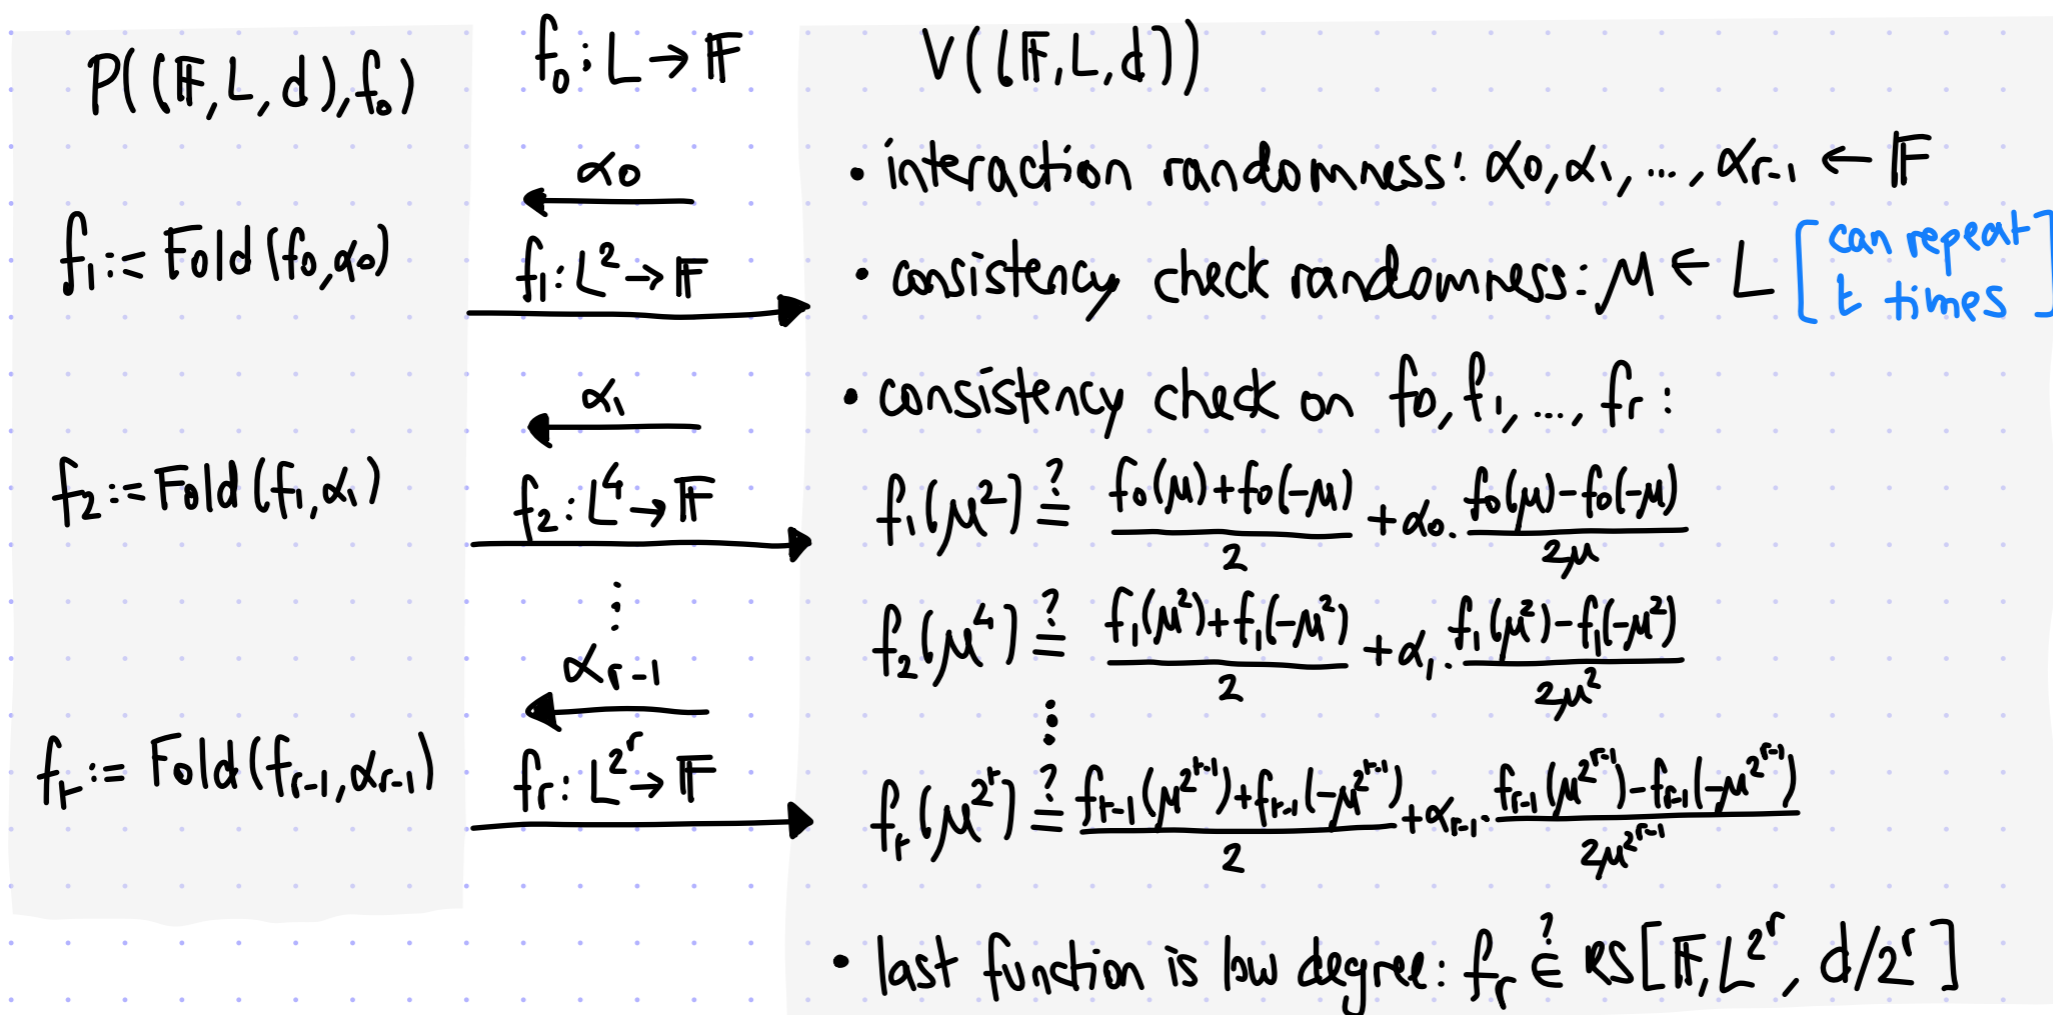 P((𝔽,L,d),f₀)
f₁:=Fold(f₀,α₀)
f₂:=Fold(f₁,α₁)
fᵣ:=Fold(fᵣ₋₁,αᵣ₋₁)
f₀:L→𝔽
α₀
f₁:L²→𝔽
α₁
f₂:L⁴→𝔽
⋮
αᵣ₋₁
fᵣ:L^{2^r}→𝔽
V((𝔽,L,d))
• interaction randomness: α₀,α₁,...,αᵣ₋₁ ← 𝔽
• consistency check randomness: μ ← L [can repeat
t times]
• consistency check on f₀,f₁,...,fᵣ:
f₁(μ²) ≟ (f₀(μ)+f₀(-μ))/2 + α₀·(f₀(μ)-f₀(-μ))/2μ
f₂(μ⁴) ≟ (f₁(μ²)+f₁(-μ²))/2 + α₁·(f₁(μ²)-f₁(-μ²))/2μ²
⋮
fᵣ(μ^{2^r}) ≟ (fᵣ₋₁(μ^{2^{r-1}})+fᵣ₋₁(-μ^{2^{r-1}}))/2 + αᵣ₋₁·(fᵣ₋₁(μ^{2^{r-1}})-fᵣ₋₁(-μ^{2^{r-1}}))/2μ^{2^{r-1}}
• last function is low degree: fᵣ ∈? RS[𝔽,L^{2^r}, d/2^r]